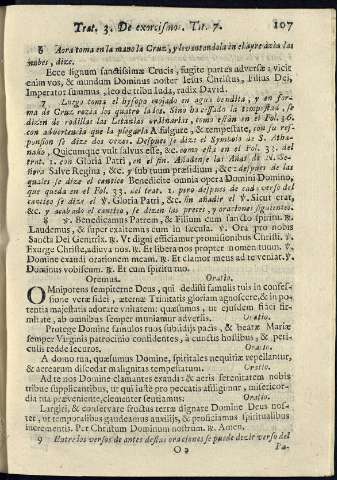 Trat. 3. De exorcismos. Tit. 7. 107
6 Aora toma en la mano la Cruz, y levantandola en el ayre àzia las
nubes, dize.
Ecce lignum sanctissimæ Crucis, fugite partes adversæ: vicit
enim vos, & mundum Dominus noster Iesus Christus, Filius Dei,
Imperator summus, leo de tribu Iuda, radix David.
7 Luego toma el hysopo mojado en agua bendita, y en for-
ma de Cruz rozia los quatro lados. Sino ha cessado la tempestad, se
dizen de rodillas las Letanias ordinarias, como estàn en el Fol. 36.
con advertencia que la plegaria A fulgure, & tempestate, con su res-
ponsion se dize dos vezes. Despues se dize el Symbolo de S. Atha-
nasio, Quicumque vult salvus esse, &c. como està en el Fol. 33. del
trat. 1. con Gloria Patri, en el fin. Añadense las Añas de N. Se-
ñora Salve Regina, &c. y sub tuum præsidium, &c: despues de las
quales se dize el cantico Benedicite omnia opera Domini Domino,
que queda en el Fol. 33. del trat. 1. pero despues de cada verso del
cantico se dize el ℣. Gloria Patri, &c. sin añadir el ℣. Sicut erat,
&c. y acabado el cantico, se dizen las preces, y oraciones siguientes.
8 ℣. Benedicamus Patrem, & Filium cum sancto Spiritu. ℟.
Laudemus, & super exaltemus eum in sæcula. ℣. Ora pro nobis
Sancta Dei Genitrix. ℟. Vt digni efficiamur promissionibus Christi. ℣.
Exurge Christe, adiuva nos. ℟. Et libera nos propter nomen tuum. ℣.
Domine exaudi orationem meam. ℟. Et clamor meus ad te veniat. ℣.
Dominus vobiscum. ℟. Et cum spiritu tuo.
Oremus. Oratio.
OMnipotens sempiterne Deus, qui dedisti famulis tuis in confes-
sione veræ fidei, æternæ Trinitatis gloriam agnoscere, & in po-
tentia majestatis adorare vnitatem: quæsumus, vt ejusdem fidei fir-
mitate, ab omnibus semper muniamur adversis. Oratio.
Protege Domine famulos tuos subsidijs pacis, & beatæ Mariæ
semper Virginis patrocinio confidentes, à cunctis hostibus, & peri-
culis redde securos. Oratio.
A domo tua, quæsumus Domine, spiritales nequitiæ repellantur,
& aerearum discedat malignitas tempestatum. Oratio.
Ad te nos Domine clamantes exaudi: & aeris serenitatem nobis
tribue supplicantibus, vt qui iuste pro peccatis affligimur, misericor-
dia tua præveniente, clementer sentiamus. Oratio.
Largiri, & conservare fructus terræ dignare Domine Deus nos-
ter, vt temporalibus gaudeamus auxilijs, & proficiamus spiritualibus
incrementis. Per Christum Dominum nostrum. ℟. Amen.
9 Entre los versos de antes destas oraciones se puede dezir verso del
O 2 Pa-